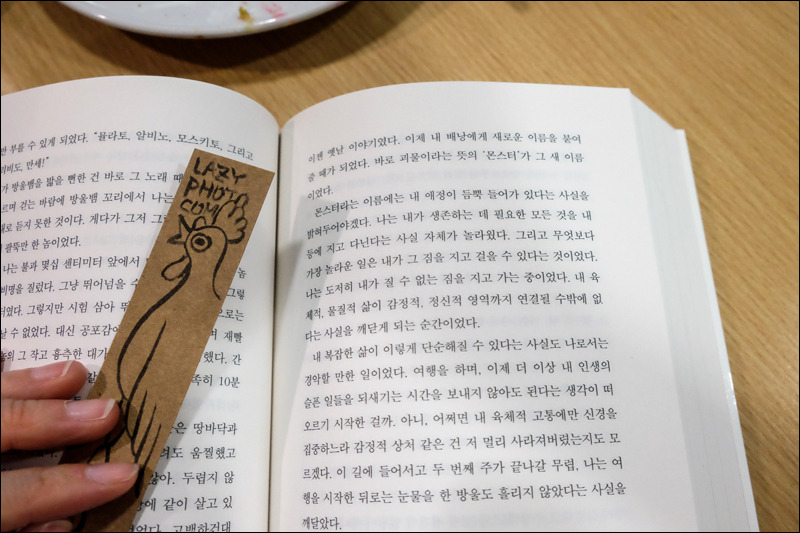 반 부를 수 있게 되었다. “율라토, 알비노, 모스키토, 그리고
리비도, 만세!”
가 방울뱀을 밟을 뻔한 건 바로 그 노래 때
르며 걷는 바람에 방울뱀 꼬리에서 나는
대로 듣지 못한 것이다. 게다가 그저 그런
팔뚝만 한 놈이었다.
나는 불과 몇십 센티미터 앞에서 놈
비명을 질렀다. 그냥 뛰어넘을 수 그렇
터였다. 그렇지만 시험 삼아 뛰 으로는
날 수 없었다. 대신 공포감에 며 재빨
놈의 그 작고 흉측한 대가 했다. 간
족히 10분
은 땅바닥과
려도 움찔했고
않아. 두렵지 않
안에 같이 살고 있
었다. 고백하건대
LAZY
PHOTO
COM
이젠 옛날 이야기였다. 이제 내 배낭에게 새로운 이름을 붙여
줄 때가 되었다. 바로 괴물이라는 뜻의 ‘몬스터’가 그 새 이름
이었다.
몬스터라는 이름에는 내 애정이 듬뿍 들어가 있다는 사실을
밝혀두어야겠다. 나는 내가 생존하는 데 필요한 모든 것을 내
등에 지고 다닌다는 사실 자체가 놀라웠다. 그리고 무엇보다
가장 놀라운 일은 내가 그 짐을 지고 걸을 수 있다는 것이었다.
나는 도저히 내가 질 수 없는 짐을 지고 가는 중이었다. 내 육
체적, 물질적 삶이 감정적, 정신적 영역까지 연결될 수밖에 없
다는 사실을 깨닫게 되는 순간이었다.
내 복잡한 삶이 이렇게 단순해질 수 있다는 사실도 나로서는
경악할 만한 일이었다. 여행을 하며, 이제 더 이상 내 인생의
슬픈 일들을 되새기는 시간을 보내지 않아도 된다는 생각이 떠
오르기 시작한 걸까. 아니, 어쩌면 내 육체적 고통에만 신경을
집중하느라 감정적 상처 같은 건 저 멀리 사라져버렸는지도 모
르겠다. 이 길에 들어서고 두 번째 주가 끝나갈 무렵, 나는 여
행을 시작한 뒤로는 눈물을 한 방울도 흘리지 않았다는 사실을
깨달았다.